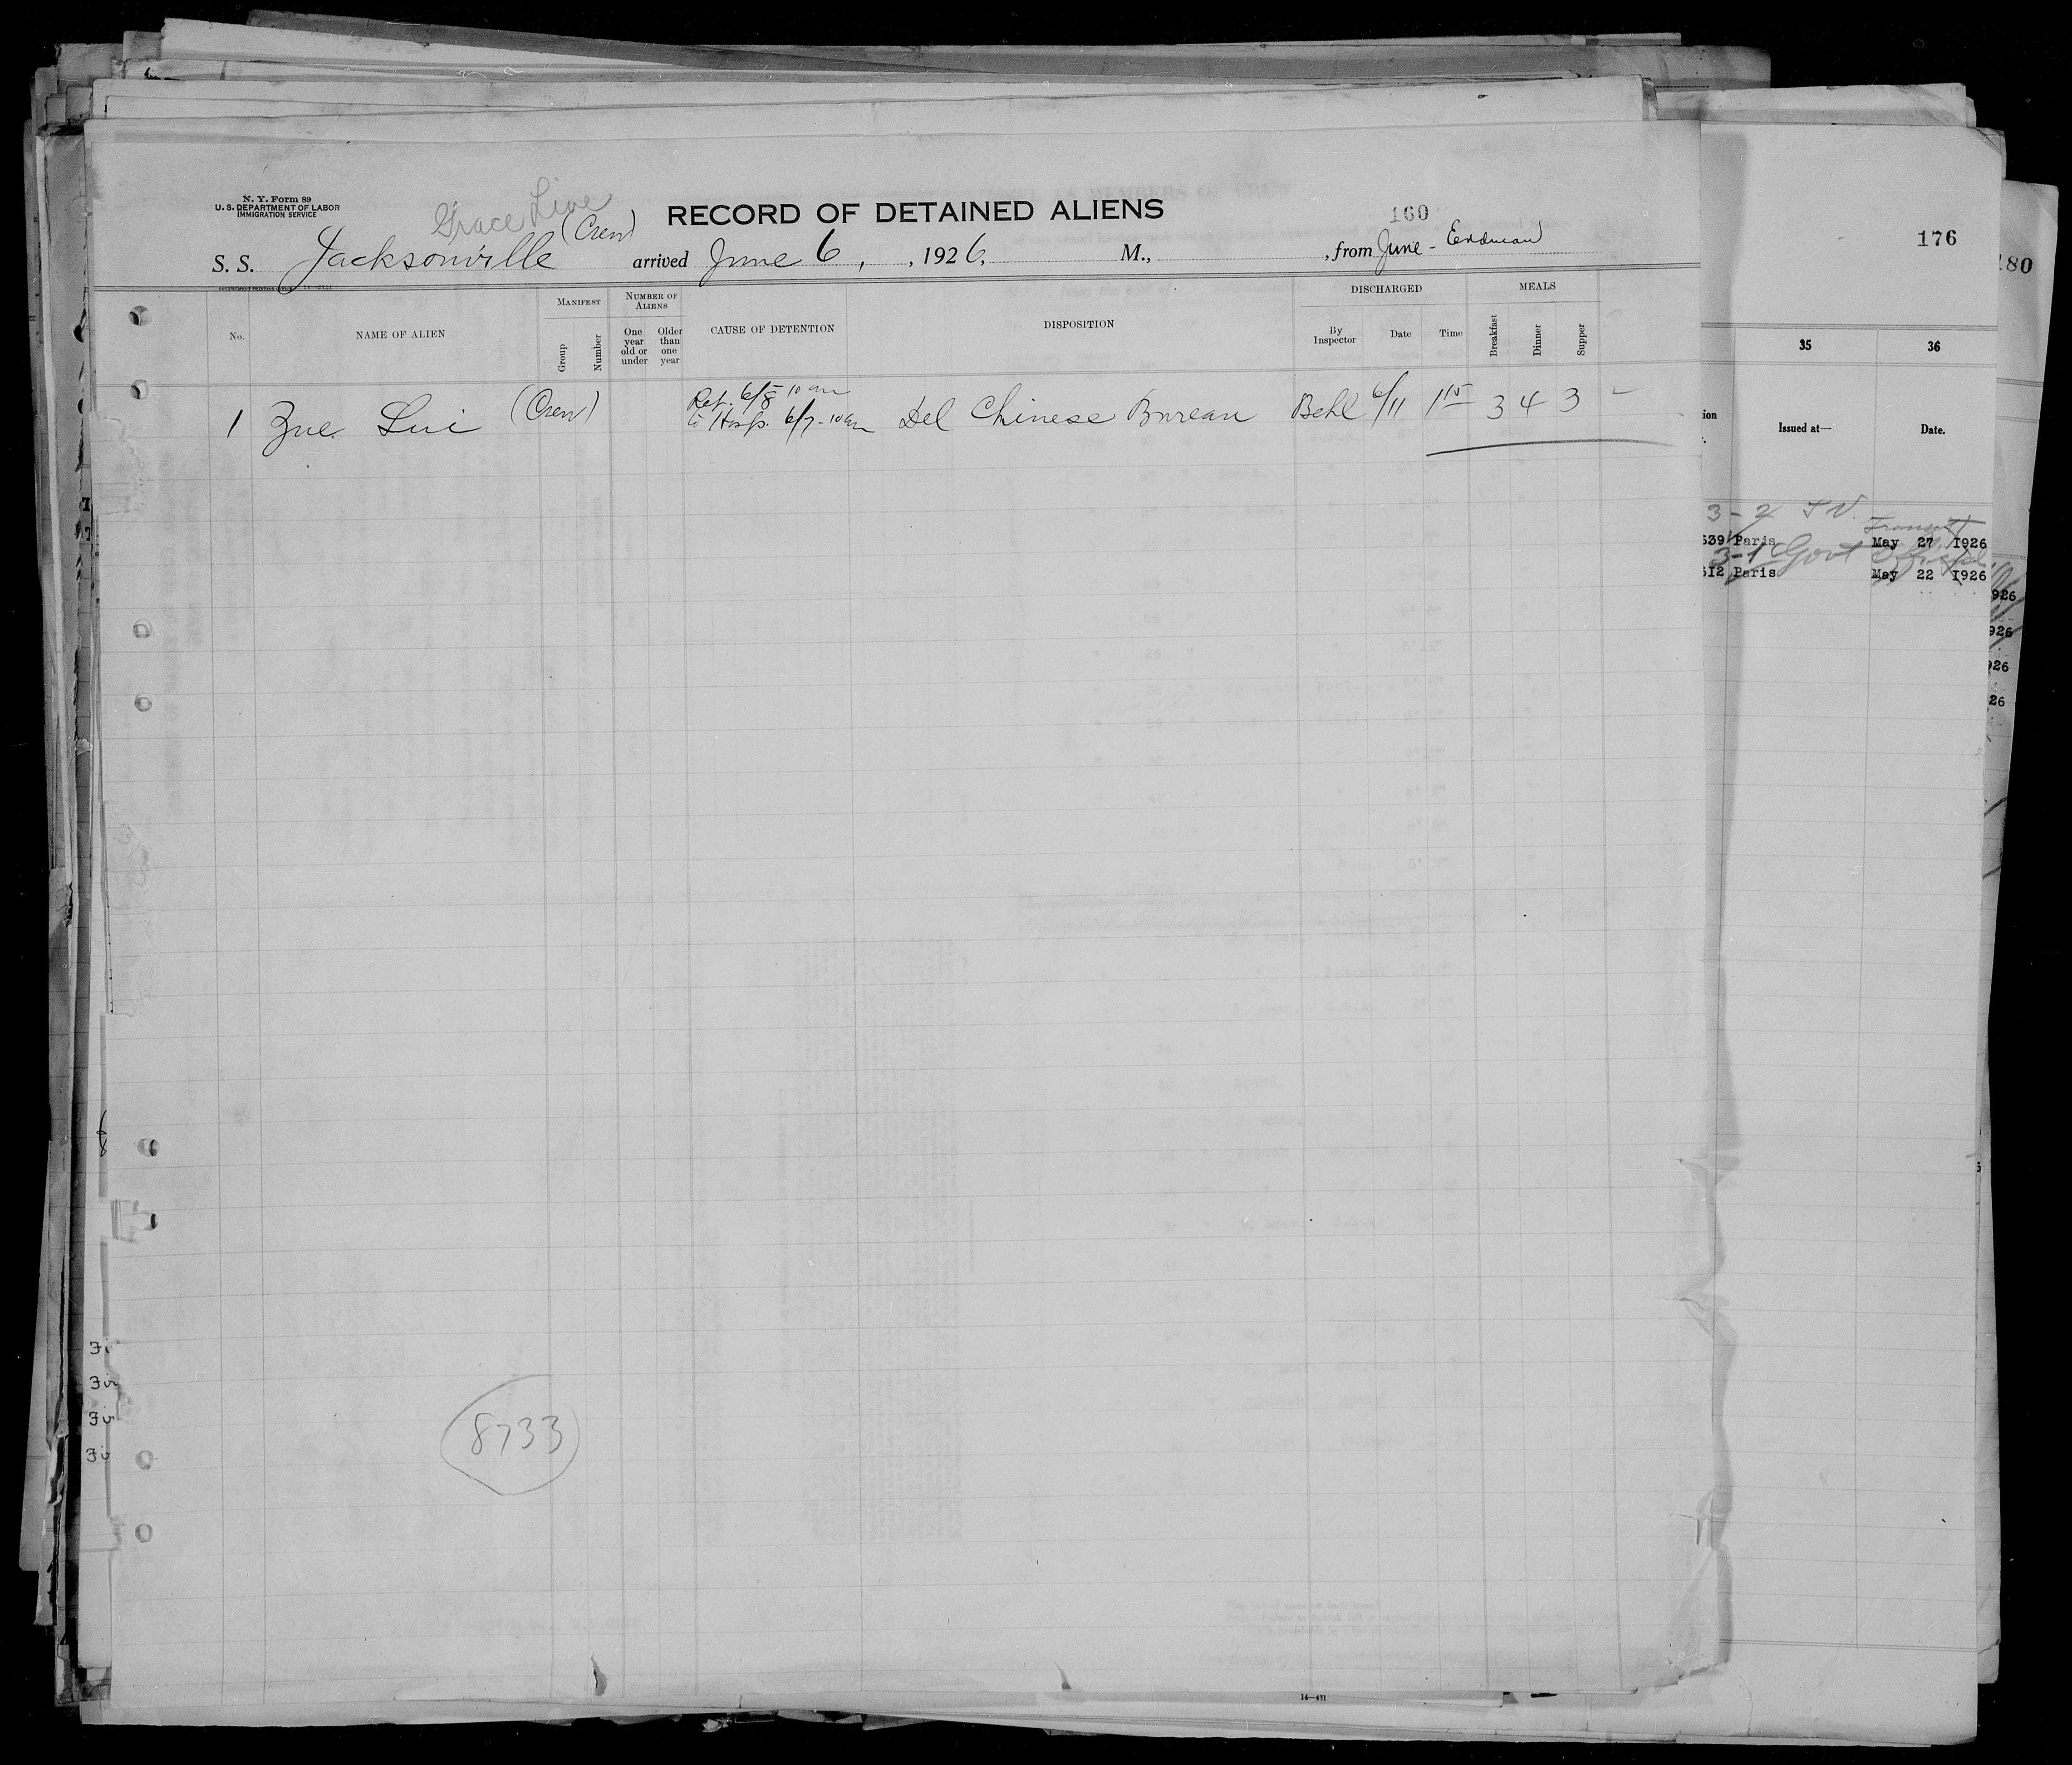 N. Y. Form 89
U. S. DEPARTMENT OF LABOR
IMMIGRATION SERVICE
Grace Line
(Crew)
RECORD OF DETAINED ALIENS
160
S. S. Jacksonville arrived June 6, , 1926, M., , from June - Erdman
MANIFEST NUMBER OF ALIENS DISCHARGED MEALS
No. NAME OF ALIEN Group Number One year old or under Older than one year CAUSE OF DETENTION DISPOSITION By Inspector Date Time Breakfast Dinner Supper
Ret. 6/8 10 am
1 Zue Lui (Crew) to Hosp. 6/7 - 10 am Del Chinese Bureau Behl 6/11 1 15 3 4 3
8733
14—431
176
180
35 36
Issued at— Date.
3 - 2 T V. Transit
639 Paris May 27 1926
3-1 Govt Official
612 Paris May 22 1926
926
926
926
26